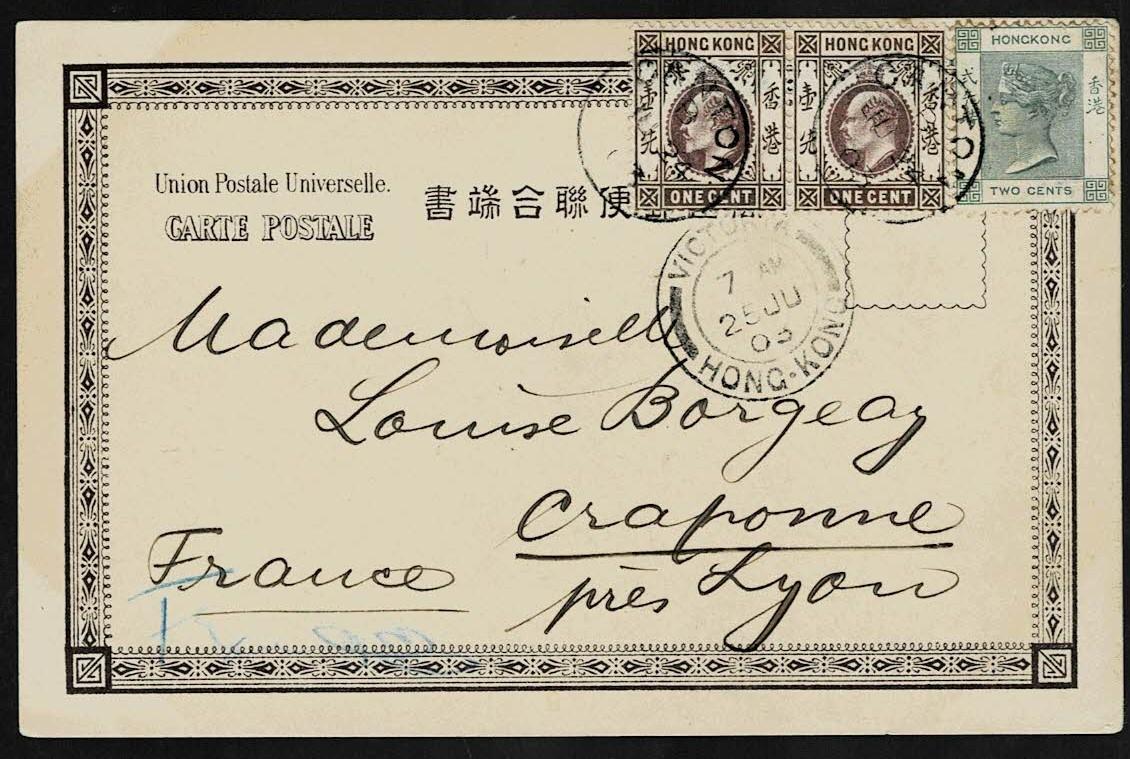 HONG KONG
壹先
香港
ONE CENT
HONG KONG
壹先
香港
ONE CENT
HONGKONG
香港
TWO CENTS
CANTON
CANTON
Union Postale Universelle.
CARTE POSTALE
書端合聯便
VICTORIA
7 AM
25 JU
03
HONG-KONG
Mademoiselle
Louise Borgeay
Craponne
près Lyon
France